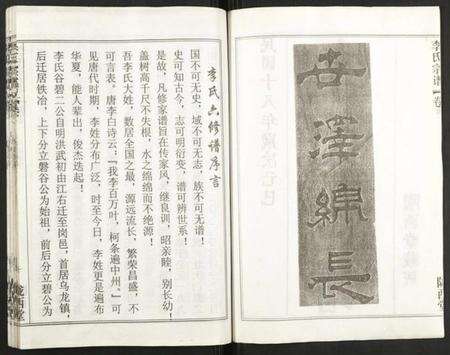 李氏宗谱
卷
陇西堂
世澤綿長
民國十八年歲次己巳
李氏六修谱序言
国不可无史，域不可无志，族不可无谱！
史可知古今，志可明衍变，谱可辨世系！
是故，凡修家谱旨在传家风，继良训，昭亲睦，别长幼！
盖树高千尺不失根，水之绵绵而不绝源！
吾氏李氏大姓，数居全国之最，源远流长，繁荣昌盛，不
可言表。唐李白诗云：「我李百万叶，柯条遍中州。」可
见唐代时期，李姓分布广泛，时至今日，李姓更是遍布
华夏，能人辈出，俊杰迭起！
李氏谷碧二公自明洪武初由江右迁至岗邑，首居乌龙镇，
后迁居铁冶，上下分立磐谷公为始祖，前后分立碧公为
陇西堂